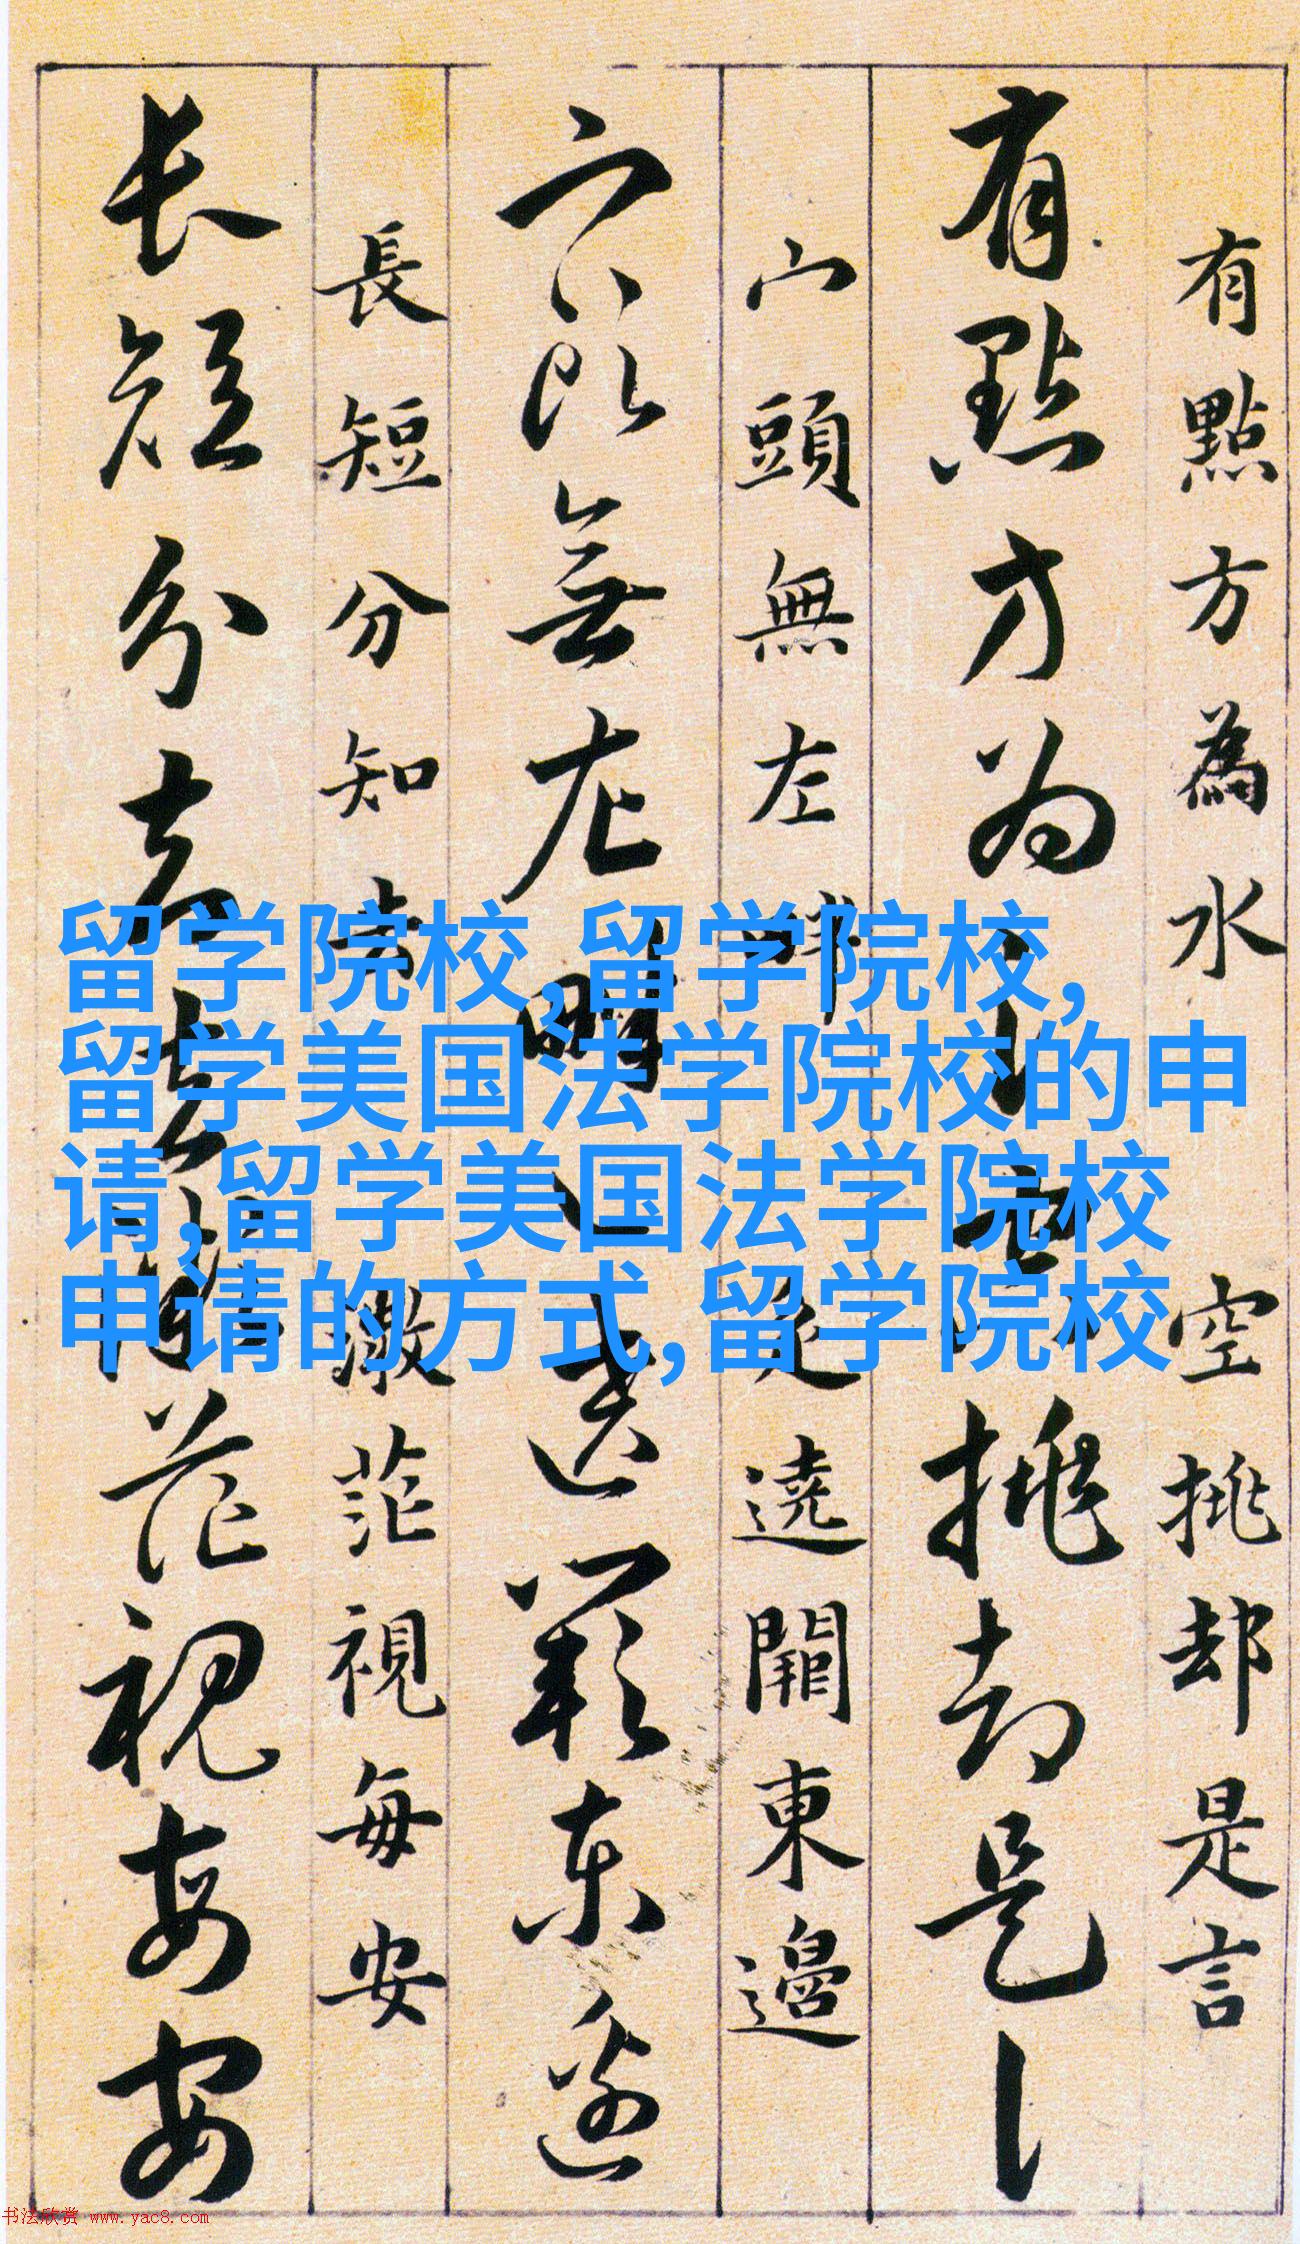 有點方為水空挑却是言
有點方为挑却是
宀頭無左遶東邊
宀頭無左遶東邊
長短分知去微茫視每安
长短分知去茫視每安
留学院校,留学院校,
留学美国法学院校的申
请,留学美国法学院校
申请的方式,留学院校
书法欣赏 www.yac8.com